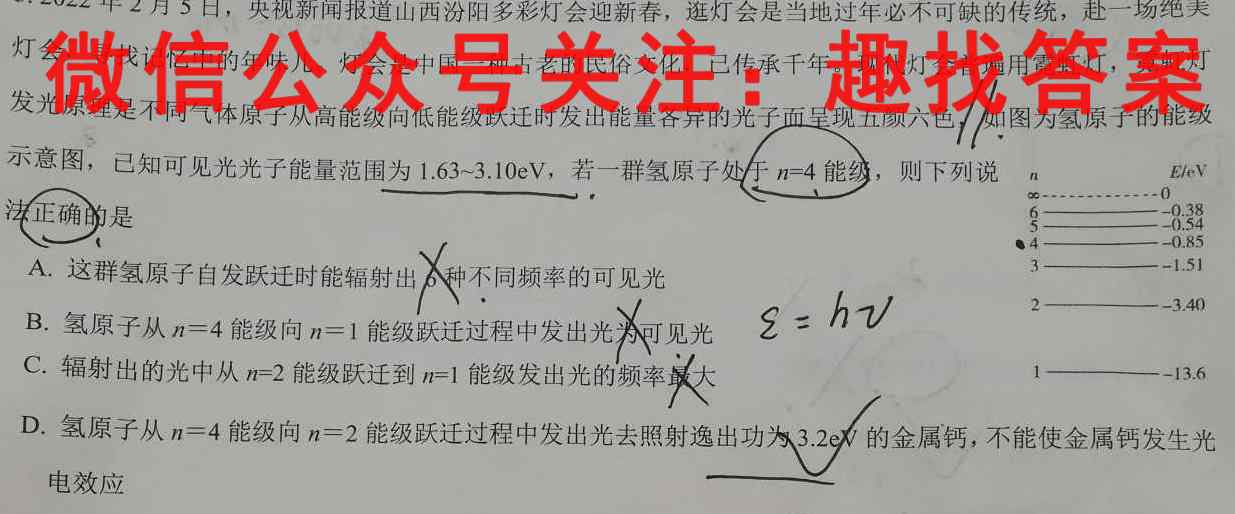 2022 年 2 月 5 日，央视新闻报道山西汾阳多彩灯会迎新春，逛灯会是当地过年必不可缺的传统，赴一场绝美
灯会，寻找记忆中的年味儿。灯会是中国一种古老的民俗文化，已传承千年。现代灯会普遍用霓虹灯，霓虹灯
微信公众号关注：趣找答案
发光原理是不同气体原子从高能级向低能级跃迁时发出能量各异的光子而呈现五颜六色，如图为氢原子的能级
示意图，已知可见光光子能量范围为 1.63~3.10eV，若一群氢原子处于 n=4 能级，则下列说
法正确的是
n E/eV
∞ 0
6 −0.38
5 −0.54
4 −0.85
3 −1.51
2 −3.40
1 −13.6
A. 这群氢原子自发跃迁时能辐射出 6 种不同频率的可见光
B. 氢原子从 n＝4 能级向 n＝1 能级跃迁过程中发出光为可见光
ε = hν
C. 辐射出的光中从 n=2 能级跃迁到 n=1 能级发出光的频率最大
D. 氢原子从 n＝4 能级向 n＝2 能级跃迁过程中发出光去照射逸出功为 3.2eV 的金属钙，不能使金属钙发生光
电效应